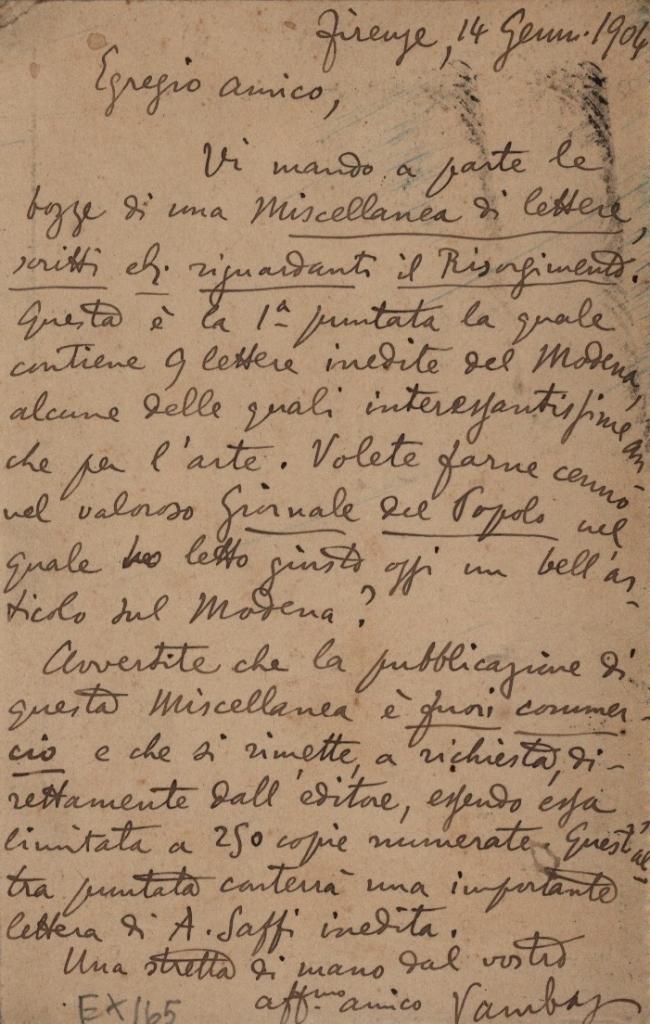 Firenze, 14 Genn. 1904
Egregio amico,
Vi mando a parte le
bozze di una Miscellanea di lettere,
scritti riguardanti il Risorgimento.
Questa è la 1ª puntata la quale
contiene 9 lettere inedite del Modena,
alcune delle quali interessantissime an
che per l'arte. Volete farne cenno
nel valoroso Giornale del Popolo nel
quale ho letto giusto oggi un bell'ar-
ticolo sul Modena?
Avvertite che la pubblicazione di
questa Miscellanea è fuori commer-
cio e che si rimette, a richiesta, di-
rettamente dall'editore, essendo essa
limitata a 250 copie numerate. Quest'al-
tra puntata conterrà una importante
lettera di A. Saffi inedita.
Una stretta di mano dal vostro
aff.mo amico Vamba
EX/165